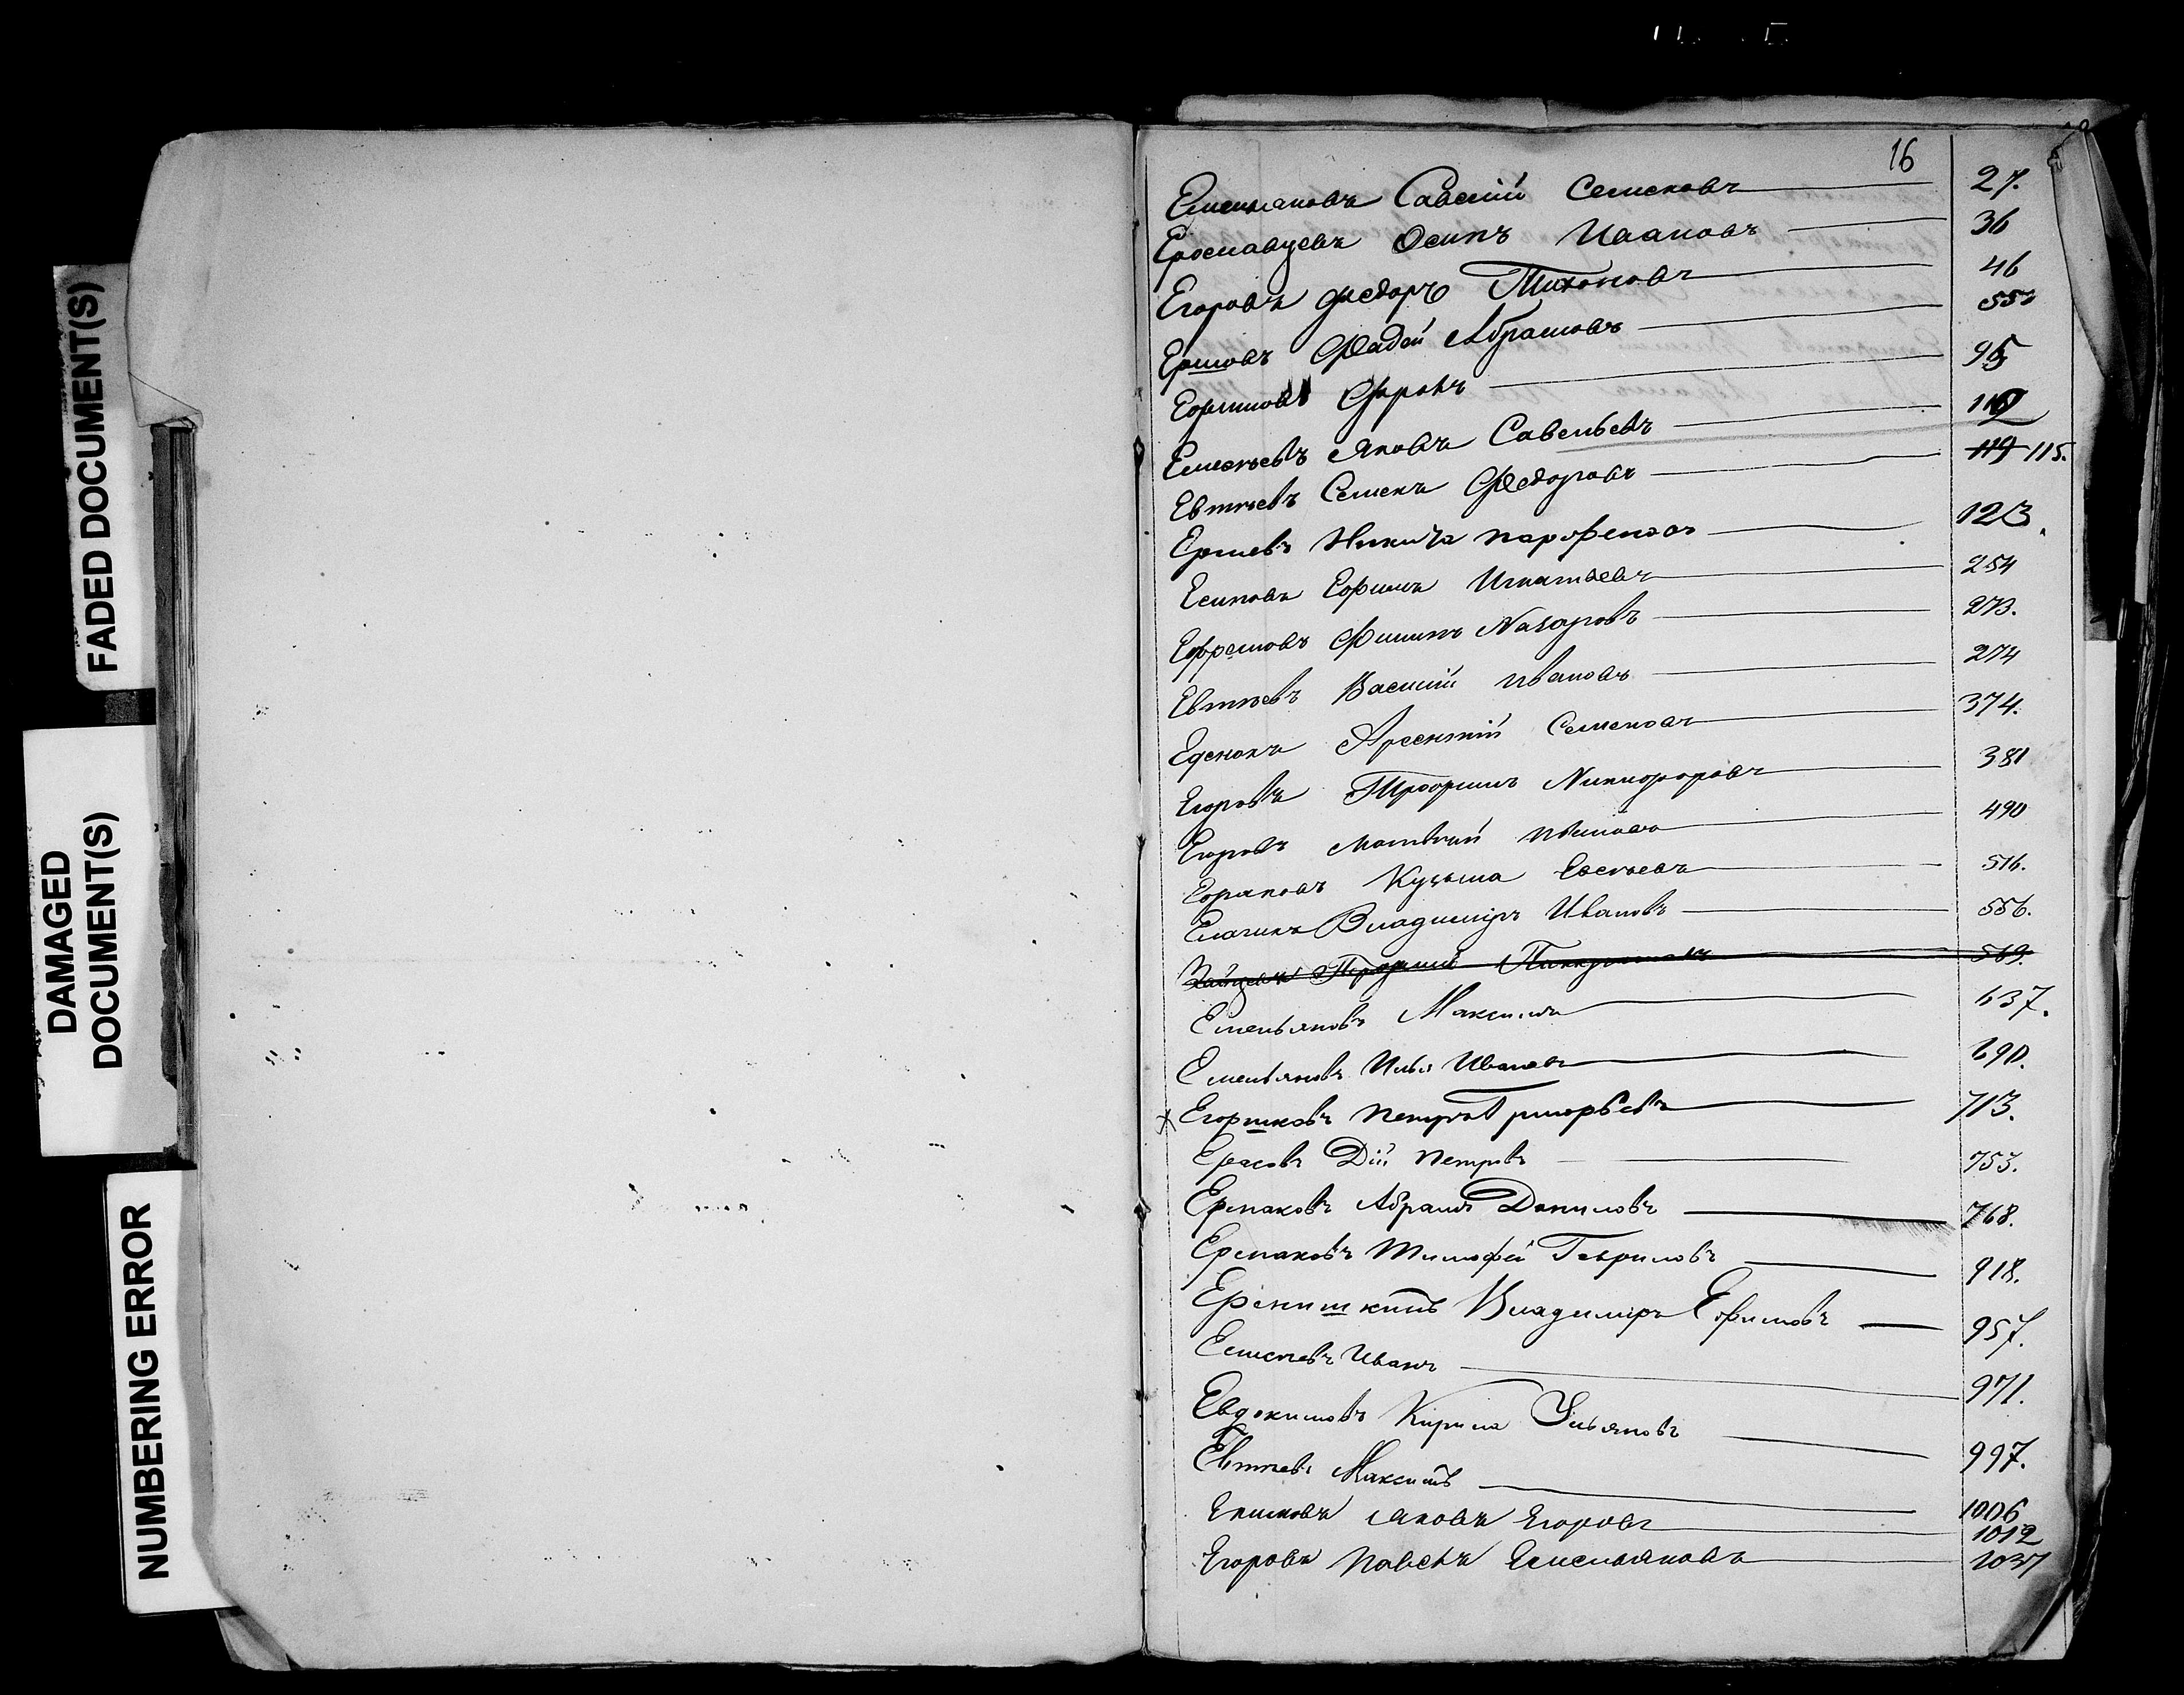 FADED DOCUMENT(S)
DAMAGED
DOCUMENT(S)
NUMBERING ERROR
16
Емельяновъ Савелий Семеновъ 27.
Ерославцевъ Осипъ Ивановъ 36
Егоровъ Федоръ Тихоновъ 46
Ершовъ Фадей Абрамовъ 55
Ефимовъ Фролъ 95
Емельевъ Яковъ Савельевъ
Евтѣевъ Семенъ Федоровъ 119 115.
Ершевъ Никита Парфеновъ 123.
Есиповъ Ефимъ Игнатьевъ 254
Ефремовъ Филипъ Назаровъ 273.
Евтѣевъ Василий Ивановъ 274
Арсентий Семеновъ 374.
Егоровъ Трофимъ Никифоровъ 381
Егоровъ Матвѣй Ивановъ 490
Кузьма Евсѣевъ 516.
Елагинъ Владимиръ Ивановъ 556.
Зайцевъ Терентий 569.
Емельяновъ Максимъ 637.
Емельяновъ Илья Ивановъ 690.
х Егоршковъ Петръ Григорьевъ 713.
Ерасовъ Дій Петровъ 753.
Ермаковъ Абрамъ Даниловъ 768.
Ермаковъ Тимофей Гавриловъ 918.
Еремишкинъ Владимиръ Ефимовъ 957.
Емелевъ Иванъ 971.
Евдокимовъ Кирила Ульяновъ 997.
Евтѣевъ Максимъ 1006
Яковъ Егоровъ 1012
Егоровъ Павелъ Емельяновъ 1037